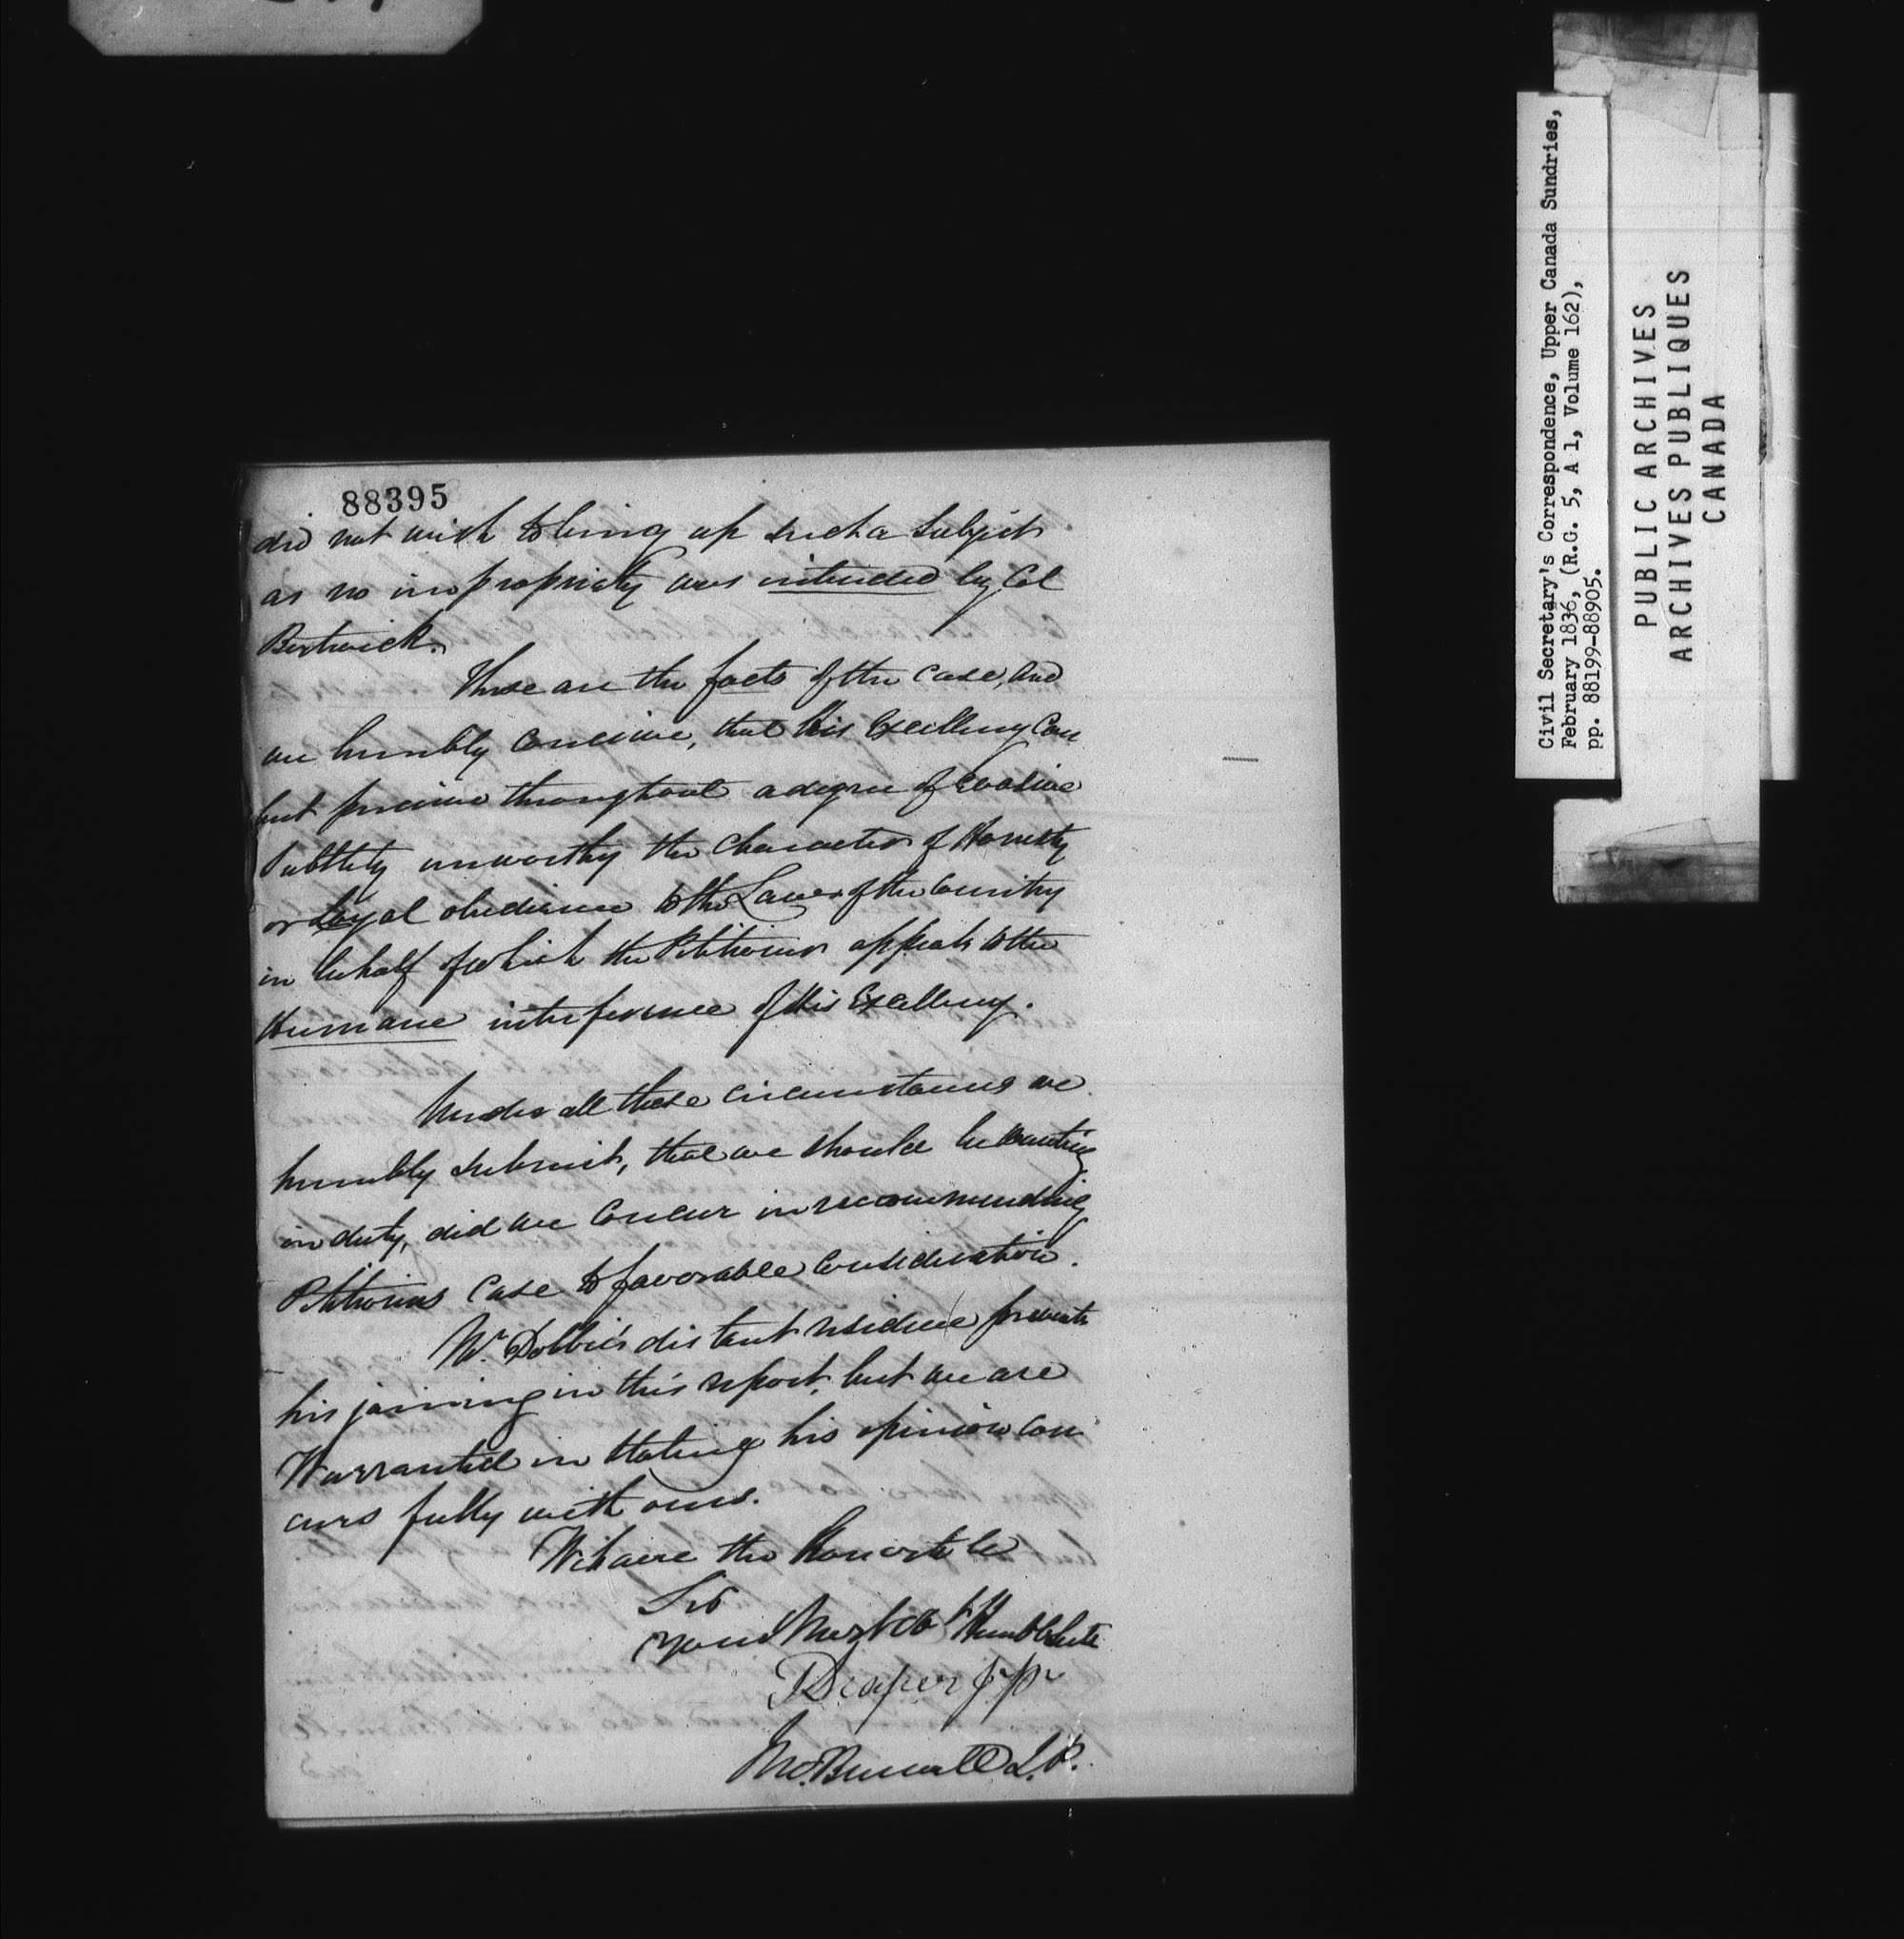 88395
did not wish to bring up such a subject
as no impropriety was intended by Col
Bostwick.
These are the facts of the case, and
we humbly conceive, that His Excellency Can
but perceive throughout a degree of evasive
subtlety unworthy the Character of Honesty
or Loyal obedience to the Laws of the Country
in behalf of which the Petitioner appeals to the
Humane interference of His Excellency.
Under all these circumstances we
humbly submit, that we should be wanting
in duty, did we Concur in recommending
Petitioners Case to favorable Consideration.
Mr. Dobbie's distant residence prevents
his joining in this report, but we are
Warranted in stating his opinion con
curs fully with ours.
We have the Honor to be
Sir
Your Most Obt Humble Servts
Draper J.P.
Jno. Burwell J.P.
Civil Secretary's Correspondence, Upper Canada Sundries,
February 1836, (R.G. 5, A 1, Volume 162),
pp. 88199-88905.
PUBLIC ARCHIVES
ARCHIVES PUBLIQUES
CANADA